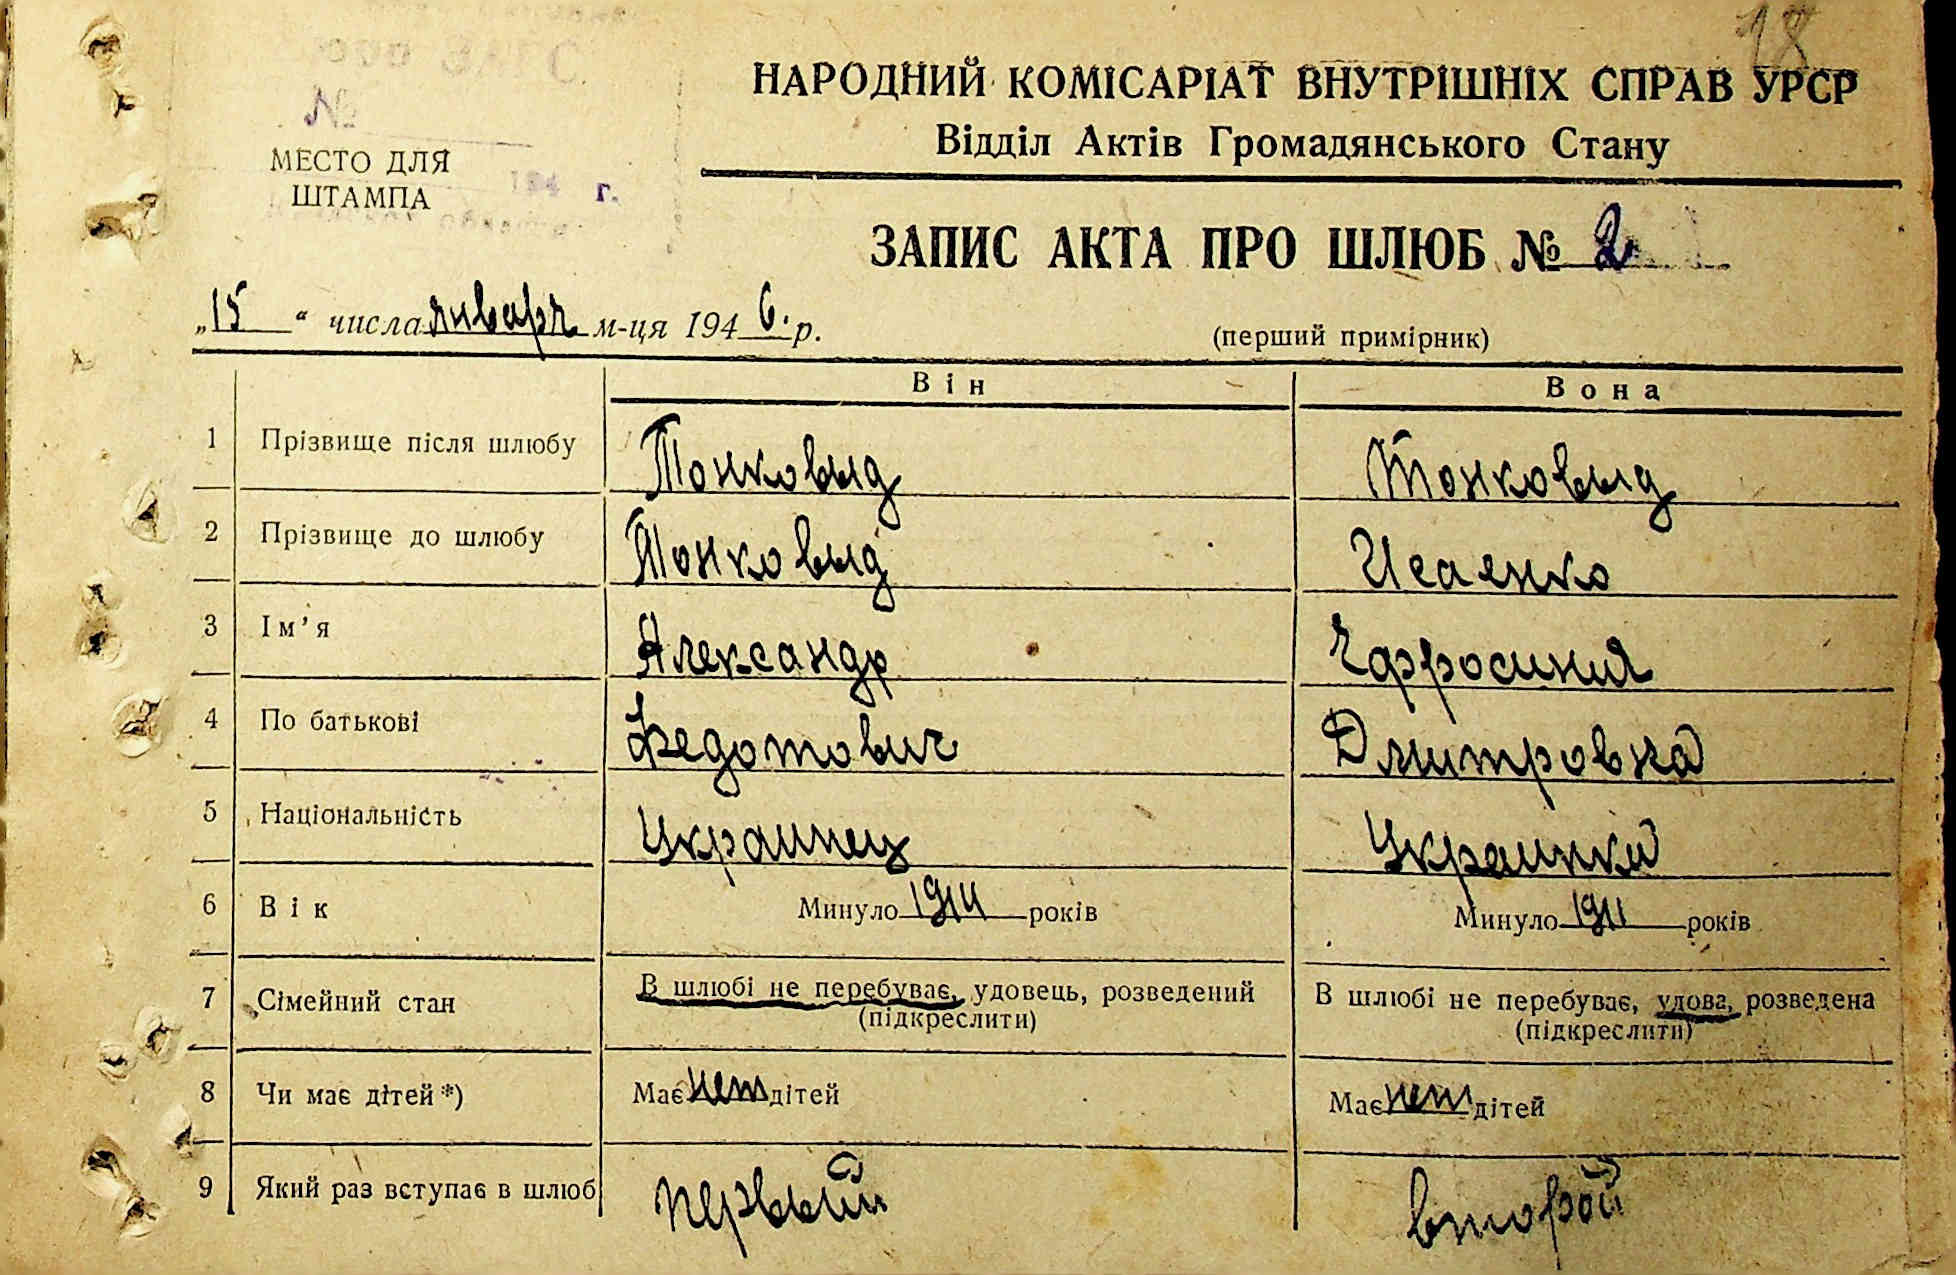 18
НАРОДНИЙ КОМІСАРІАТ ВНУТРІШНІХ СПРАВ УРСР
Відділ Актів Громадянського Стану
ЗАГС
№
МЕСТО ДЛЯ
ШТАМПА
194 г.
ЗАПИС АКТА ПРО ШЛЮБ № 2
„15“ числа января м-ця 1946. р.
(перший примірник)
Він Вона
1 Прізвище після шлюбу Тонковыд Тонковыд
2 Прізвище до шлюбу Тонковыд Исаенко
3 Ім’я Александр Ефросиния
4 По батькові Федотович Дмитровна
5 Національність Украинец Украинка
6 Вік Минуло 1914 років Минуло 1911 років
7 Сімейний стан В шлюбі не перебуває, удовець, розведений В шлюбі не перебуває, удова, розведена
(підкреслити) (підкреслити)
8 Чи має дітей *) Має нет дітей Має нет дітей
9 Який раз вступає в шлюб первый второй